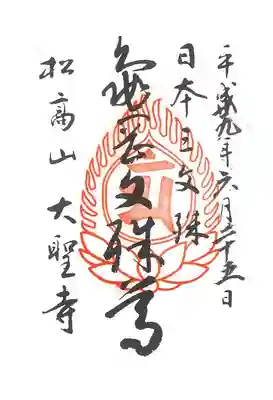 平成廿九年六月二十五日
日本三文殊
亀岡文殊尊
松高山 大聖寺